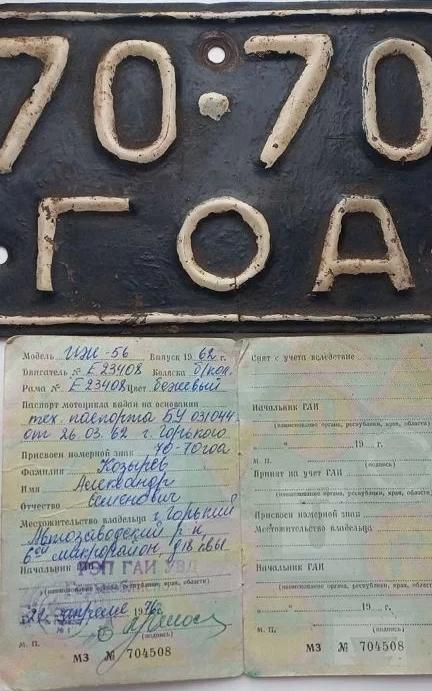 70·70
ГОА
Модель ИЖ-56 Выпуск 1962 г.
Двигатель № Е23408 Коляска б/кол.
Рама № Е23408 Цвет бежевый
Паспорт мотоцикла выдан на основании
тех. паспорта БУ 031044
от 26.03.62 г. Горького
Присвоен номерной знак 70-70гоа
Фамилия Козырев
Имя Александр
Отчество Семенович
Местожительство владельца г. Горький
Автозаводский р-н
6ой микрорайон,
Начальник РЭП ГАИ УВД
(наименование органа, республики, края, области)
апреля 1976 г.
М. П. (подпись)
МЗ № 704508
Снят с учета вследствие
Начальник ГАИ
(наименование органа, республики, края, области)
„ “ 19 г.
М. П. (подпись)
Принят на учет ГАИ
(наименование органа, республики, края, области)
Присвоен номерной знак
Местожительство владельца
Начальник ГАИ
(наименование органа, республики, края, области)
„ “ 19 г.
М. П. (подпись)
МЗ № 704508